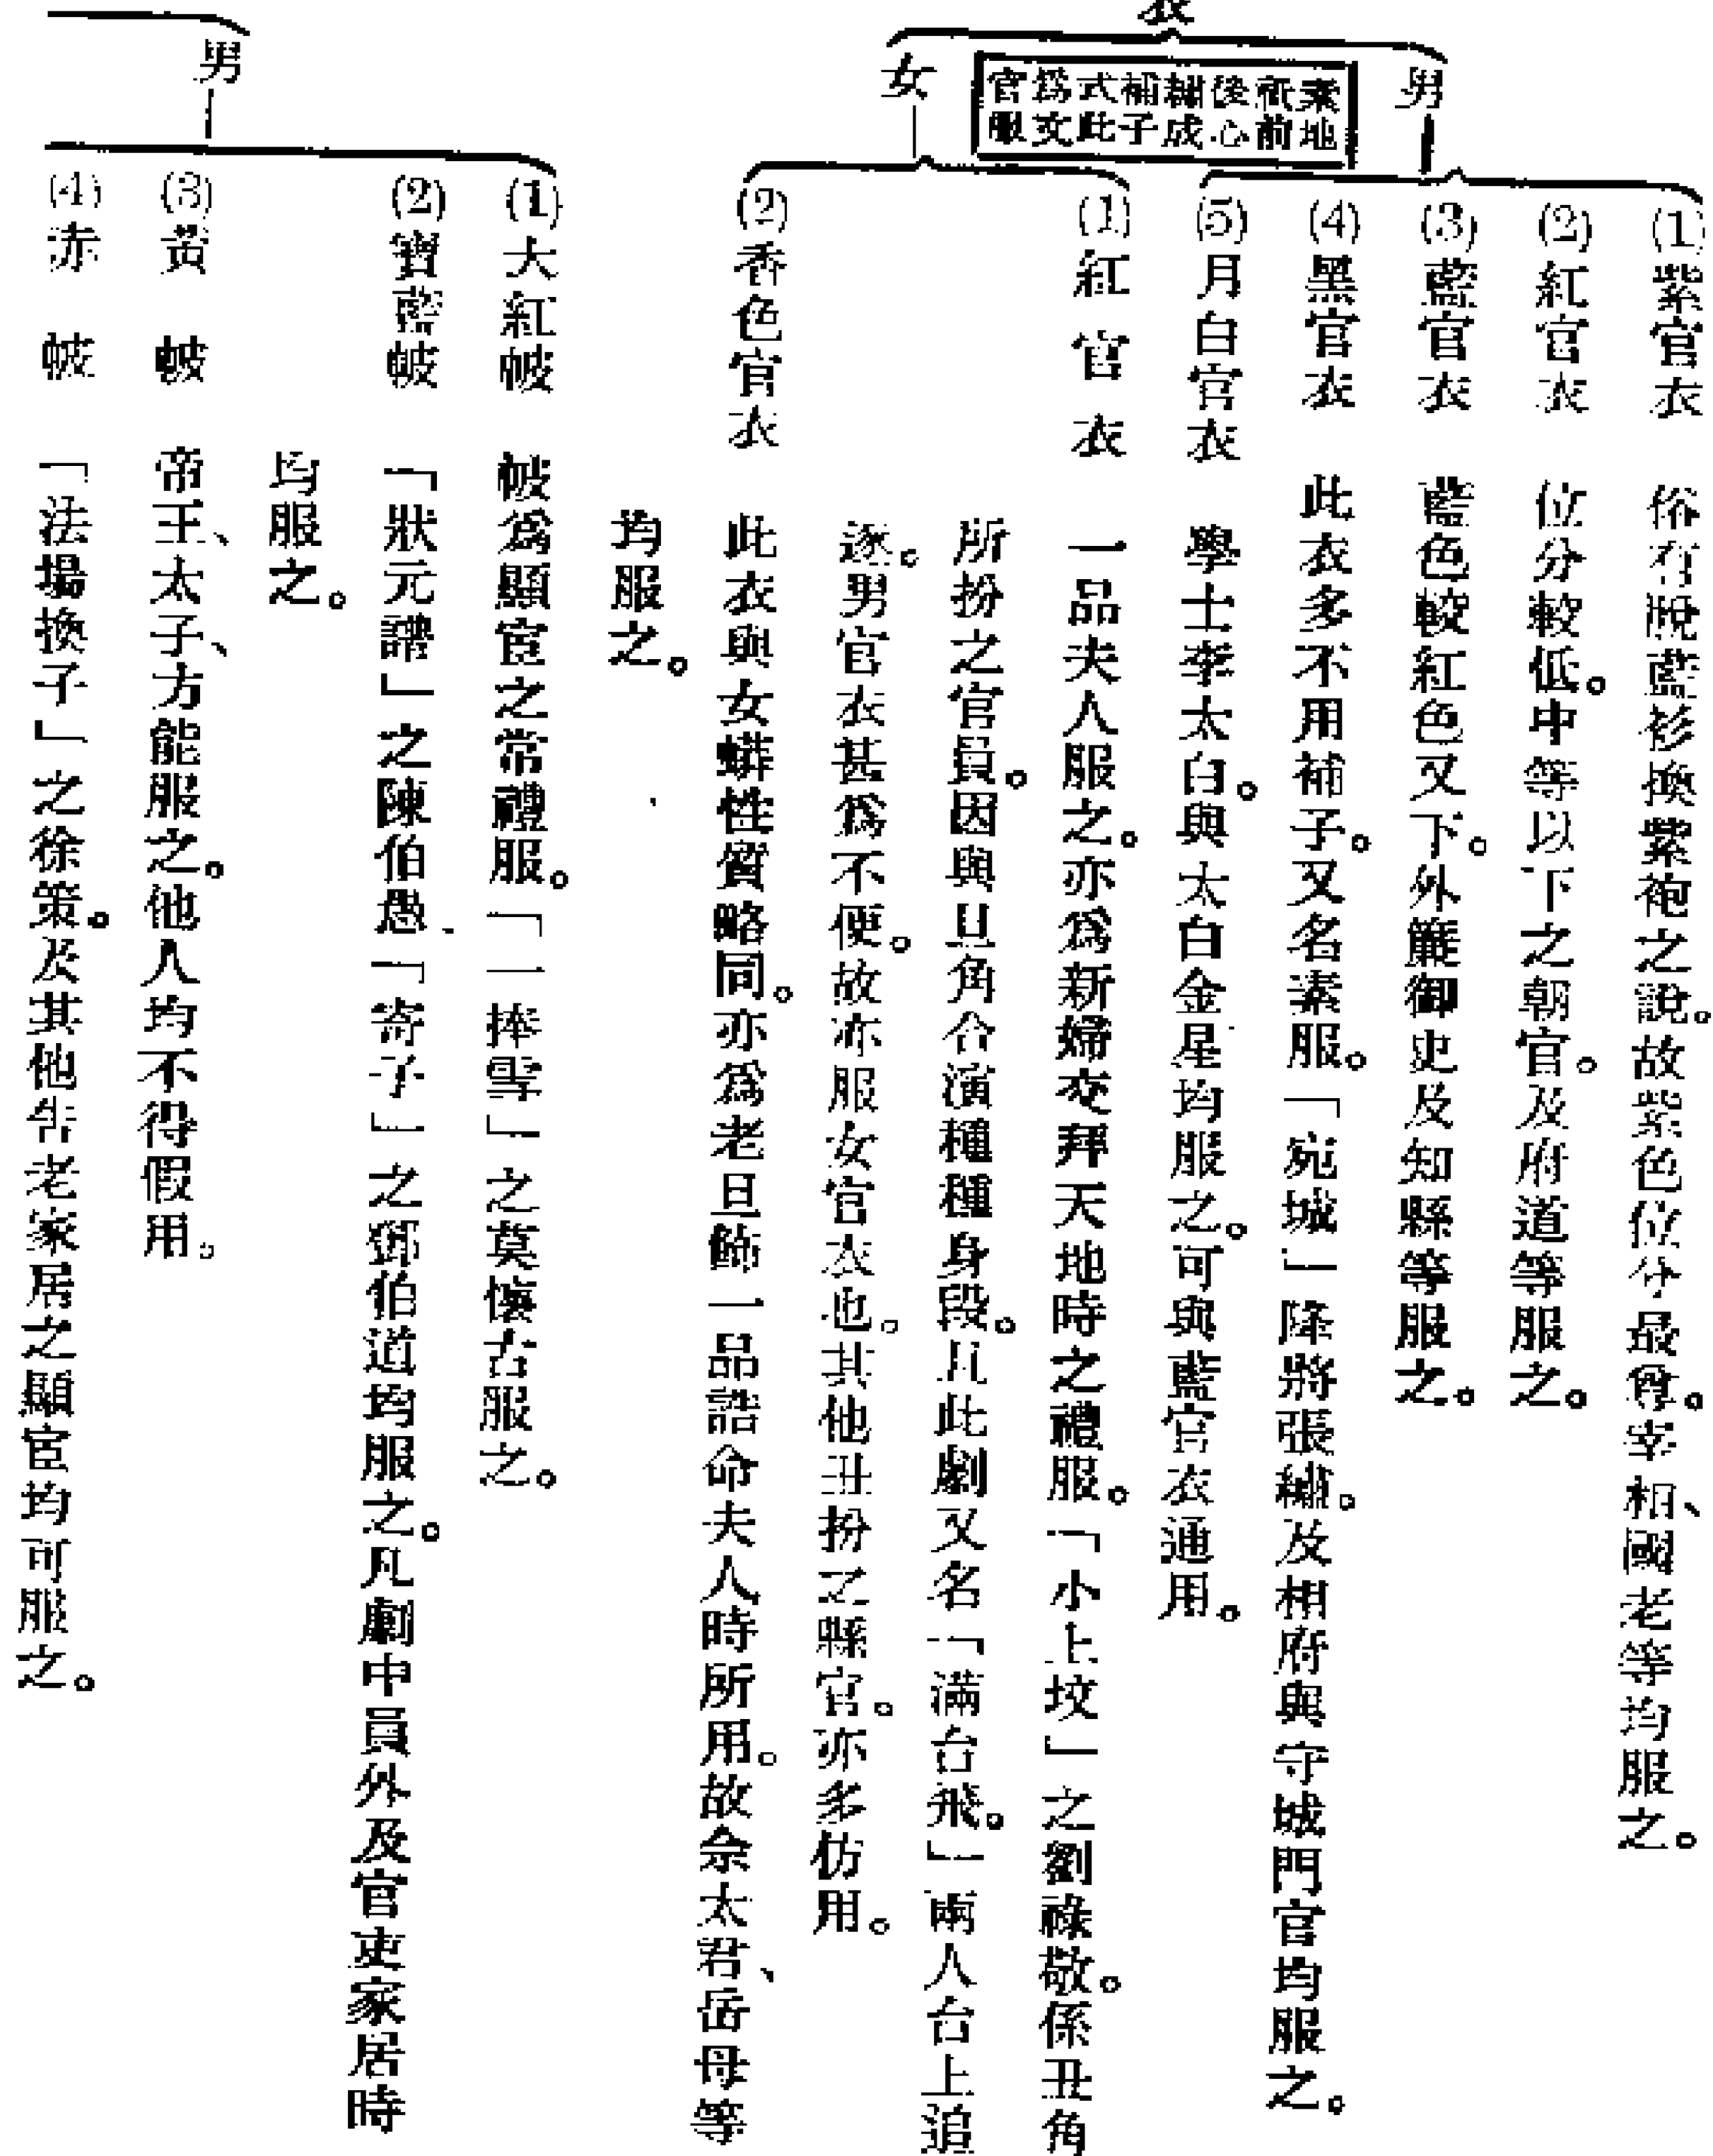 衣
男
素地
祇前
後心
繡成
補子
式此
爲文
官服
女
(1)紫官衣 俗有脫藍衫換紫袍之說。故紫色位分最尊。宰相、國老等均服之。
(2)紅官衣 位分較低。中等以下之朝官。及府道等服之。
(3)藍官衣 藍色較紅色又下。外簾御史及知縣等服之。
(4)黑官衣 此衣多不用補子。又名素服。「宛城」降將張繡。及相府與守城門官均服之。
(5)月白官衣 學士李太白。與太白金星均服之。可與藍官衣通用。
(1)紅官衣 一品夫人服之。亦爲新婦交拜天地時之禮服。「小上坟」之劉祿敬。係丑角
所扮之官員。因與旦角合演種種身段。凡此劇又名「滿台飛。」兩人台上追
逐。男官衣甚爲不便。故亦服女官衣也。其他丑扮之縣官。亦多仿用。
(2)香色官衣 此衣與女蟒性質略同。亦爲老旦飾一品誥命夫人時所用。故佘太君、岳母等
均服之。
男
(1)大紅帔 帔爲顯宦之常禮服。「一捧雪」之莫懷古服之。
(2)寶藍帔 「狀元譜」之陳伯愚「寄子」之鄧伯道均服之。凡劇中員外及官吏家居時
均服之。
(3)黃帔 帝王、太子、方能服之。他人均不得假用。
(4)赤帔 「法場換子」之徐策。及其他告老家居之顯宦均可服之。